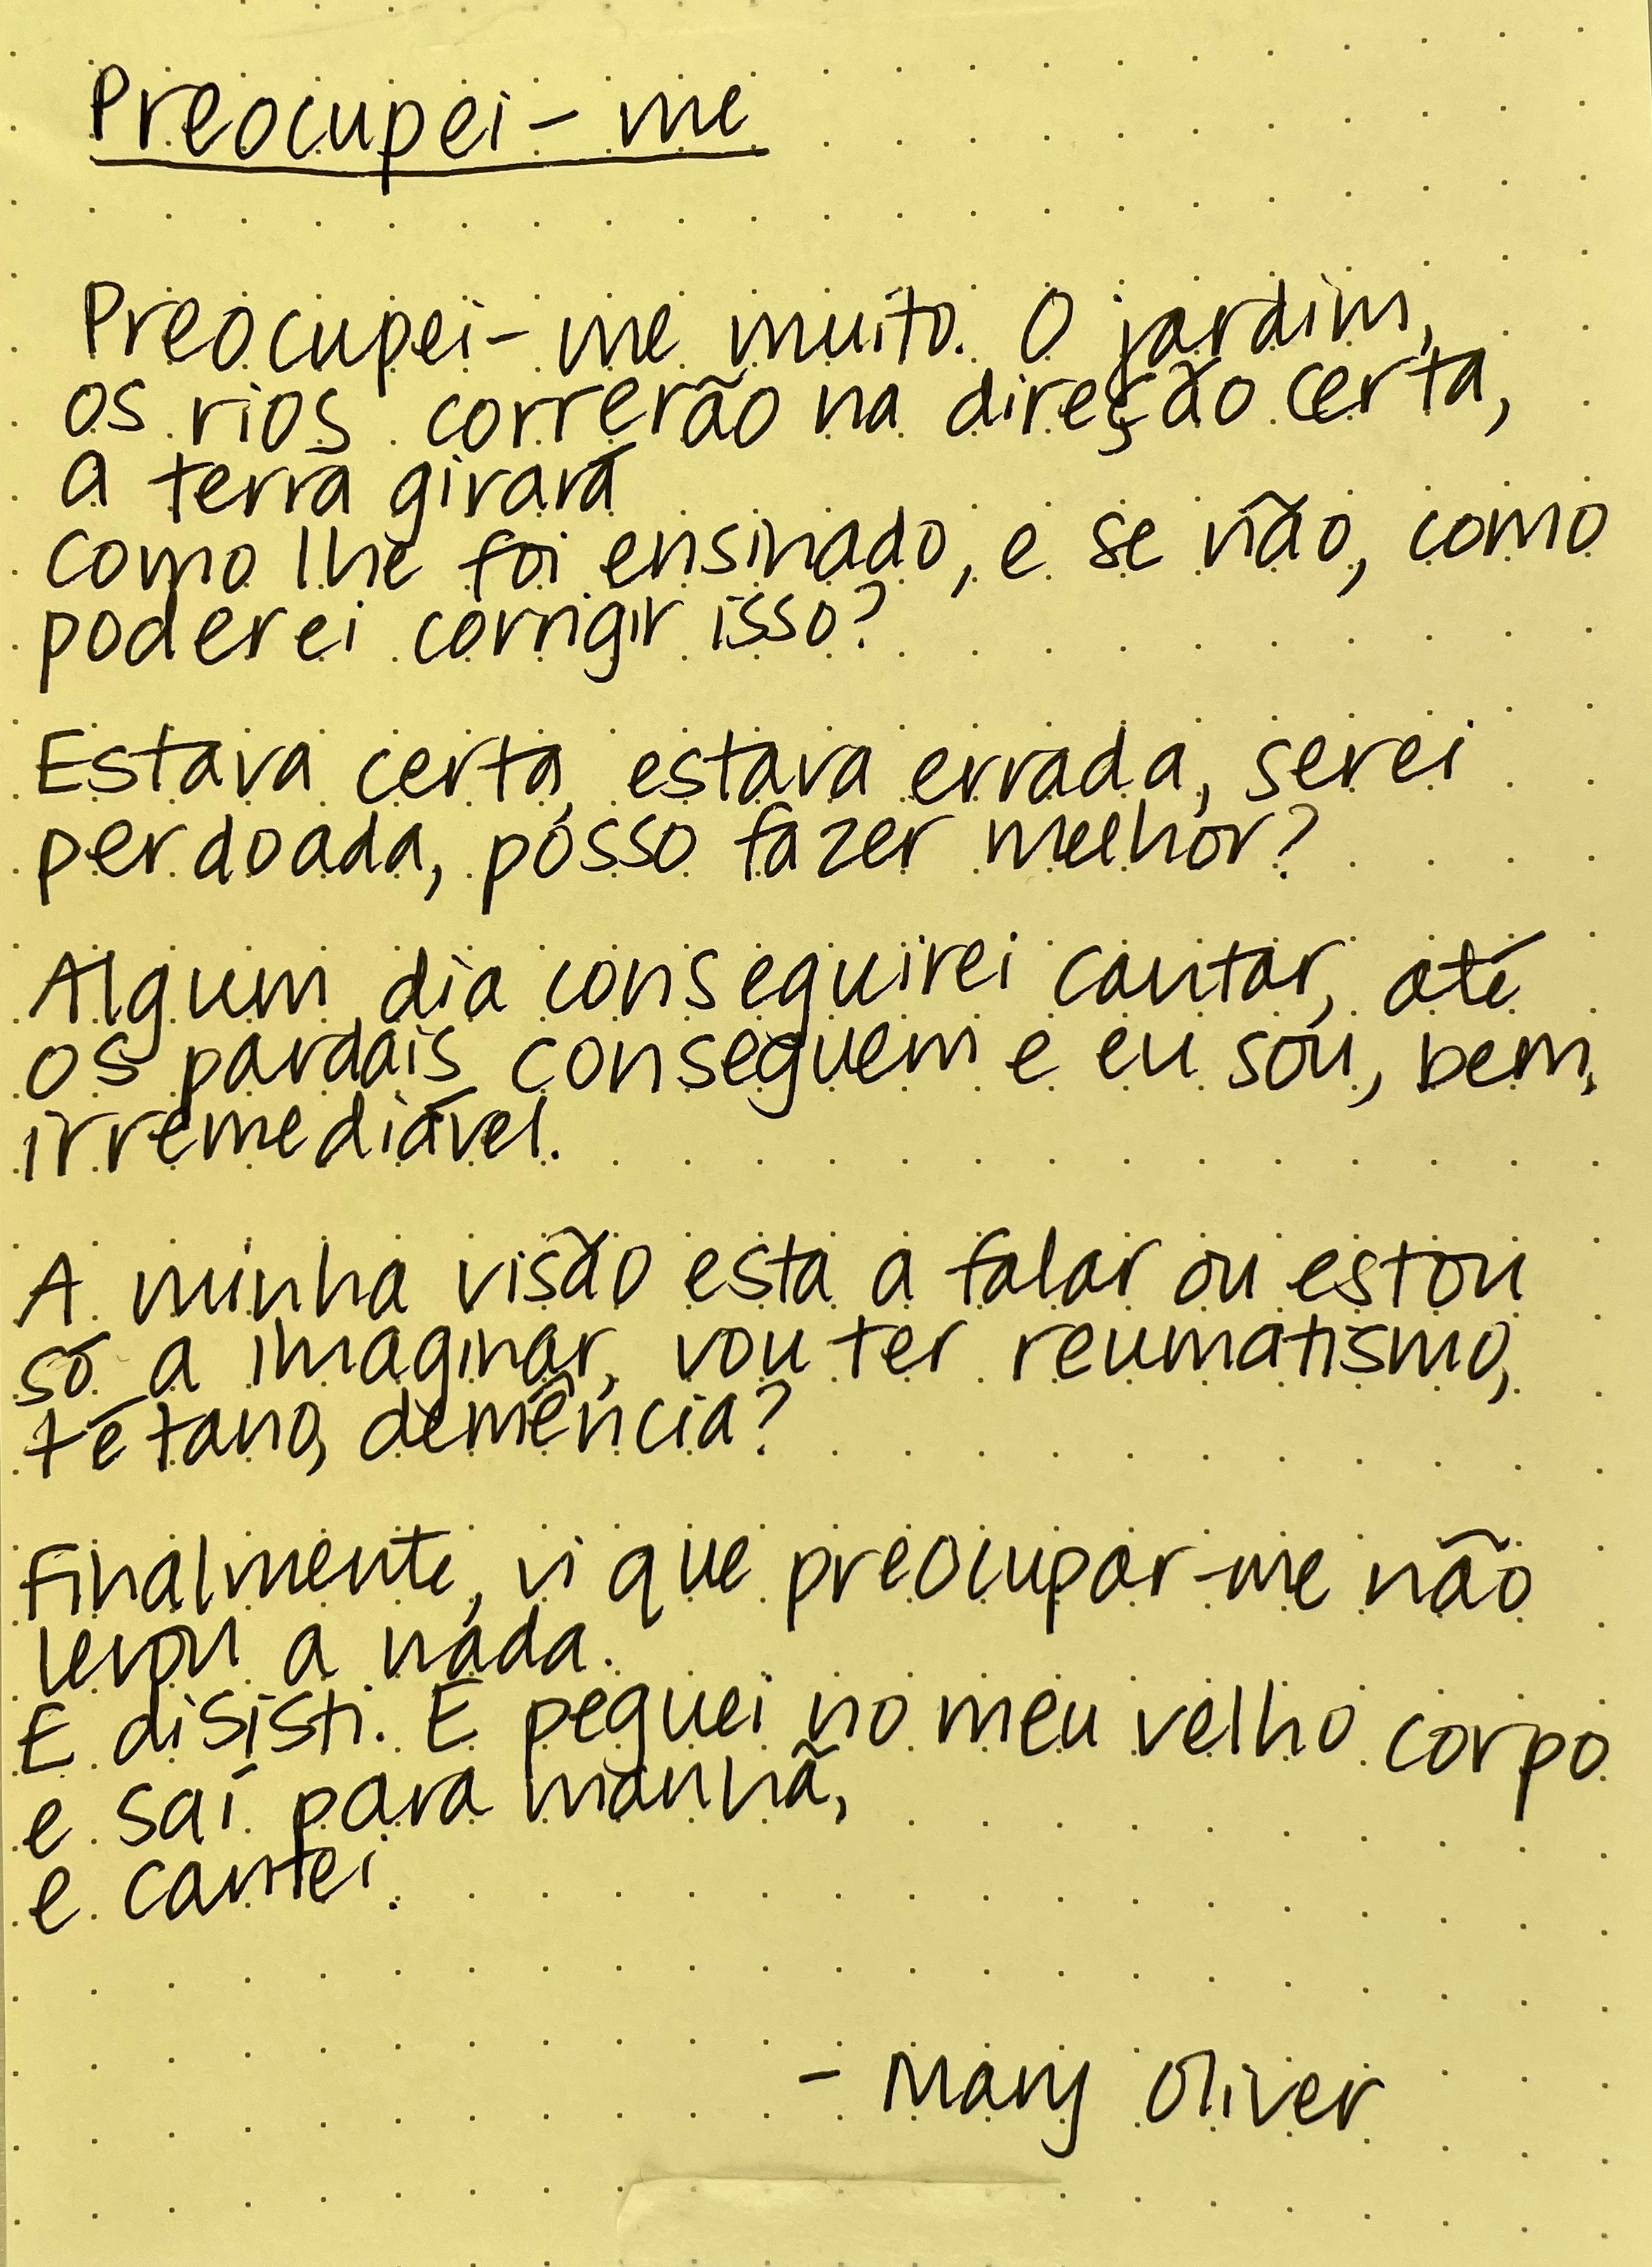 Preocupei-me
Preocupei-me muito. O jardim,
os rios correrão na direção certa,
a terra girará
como lhe foi ensinado, e se não, como
poderei corrigir isso?
Estava certa, estava errada, serei
perdoada, posso fazer melhor?
Algum dia conseguirei cantar, até
os pardais conseguem e eu sou, bem,
irremediável.
A minha visão esta a falar ou estou
só a imaginar, vou ter reumatismo,
tétano, demência?
Finalmente, vi que preocupar-me não
levou a nada.
E disisti. E peguei no meu velho corpo
e saí para manhã,
e cantei.
- Mary Oliver